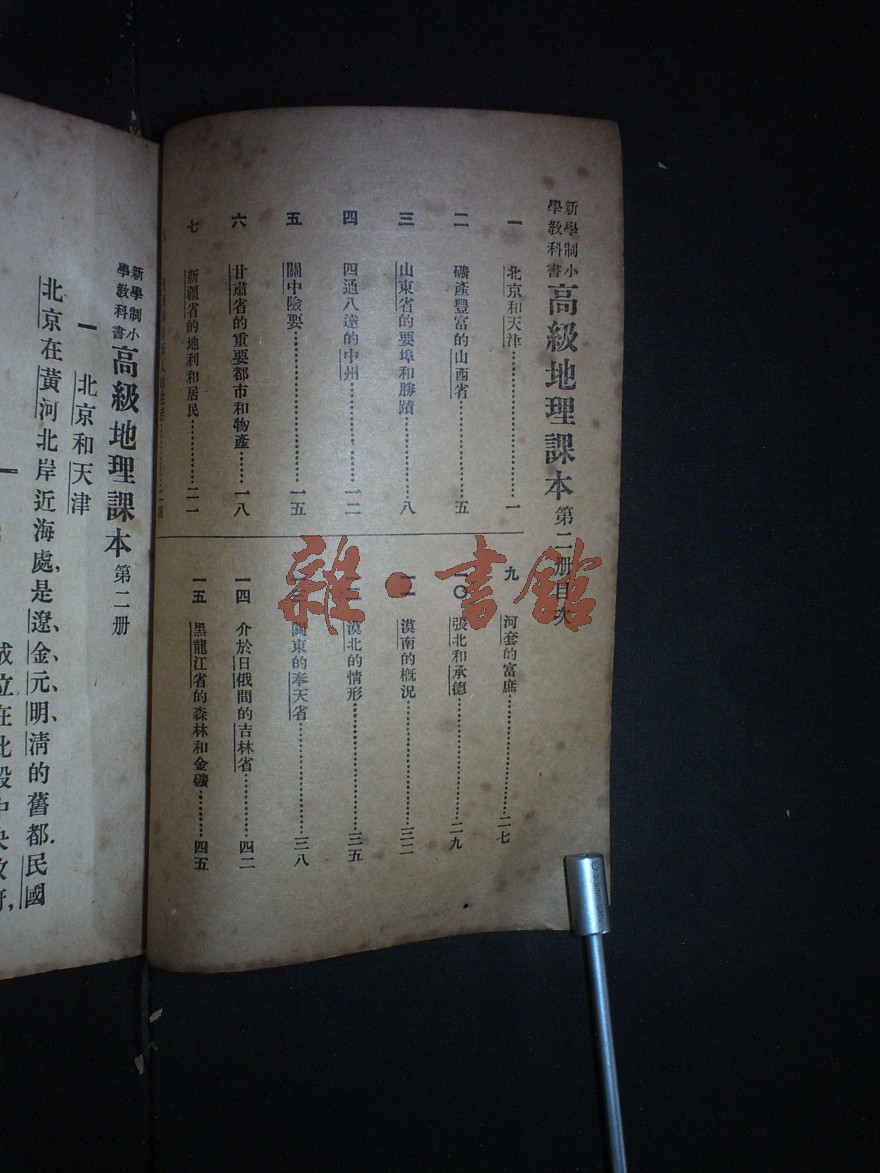 新學制小
學教科書
高級地理課本 第二册目次
一 北京和天津………一
二 礦產豐富的山西省………五
三 山東省的要埠和勝蹟………八
四 四通八達的中州………一二
五 關中險要………一五
六 甘肅省的重要都市和物產………一八
七 新疆省的地利和居民………二一
九 河套的富庶………二七
一〇 張北和承德………二九
一一 漠南的概況………三二
漠北的情形………三五
關東的奉天省………三八
一四 介於日俄間的吉林省………四二
一五 黑龍江省的森林和金礦………四五
雜·書館
新學制小
學教科書
高級地理課本 第二册
一 北京和天津
北京在黃河北岸近海處，是遼、金、元、明、清的舊都．民國
成立在此設中央政府，